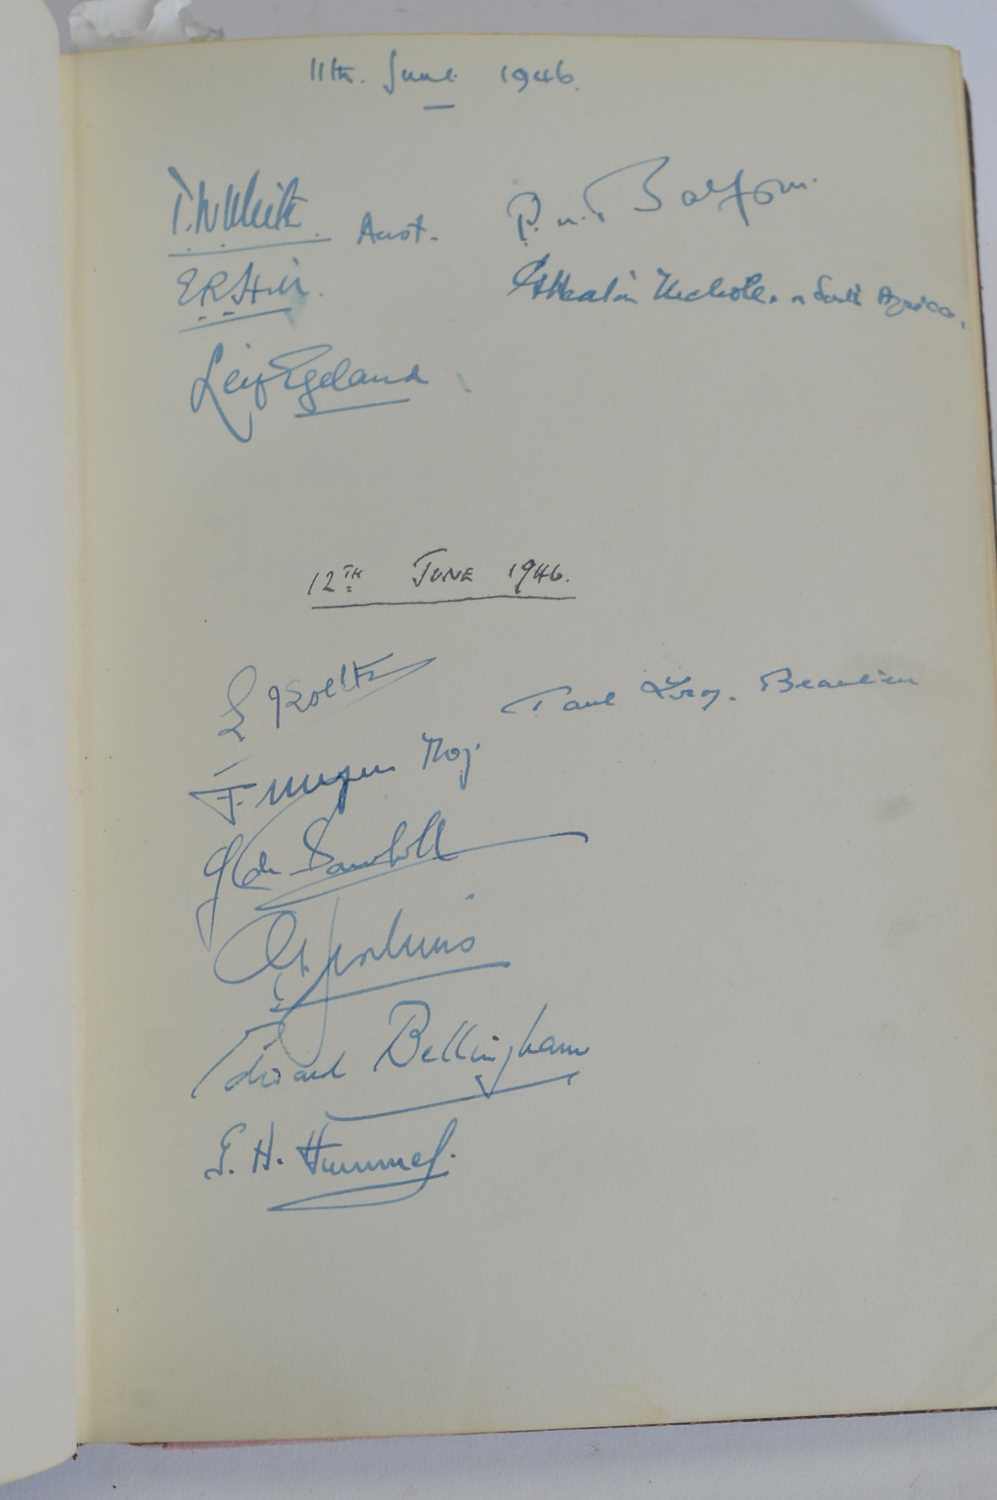 11th. June 1946.
T. W White. Aust. P. M. Balfour.
E R Hill. Heaton Nicholls. South Africa.
Leif Egeland
12TH JUNE 1946.
L Koeltz Paul Leroy-Beaulieu
F. Meyer Maj.
G de
Jenkins
Edward Bellingham
E. H. Hummel.